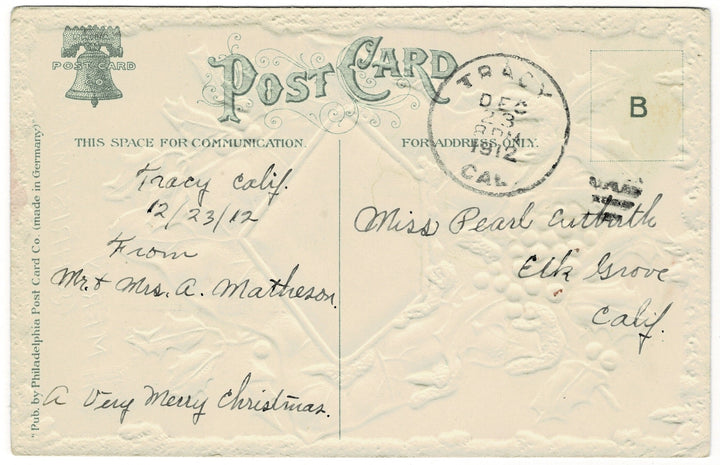 PHILA.
POST CARD
POST CARD
TRACY
DEC
23
8 PM
1912
CAL.
B
THIS SPACE FOR COMMUNICATION.
FOR ADDRESS ONLY.
Tracy Calif.
12/23/12
From
Mr. & Mrs. A. Matheson.
A Very Merry Christmas.
Miss Pearl
Elk Grove
Calif.
"Pub. by Philadelphia Post Card Co. (made in Germany)"